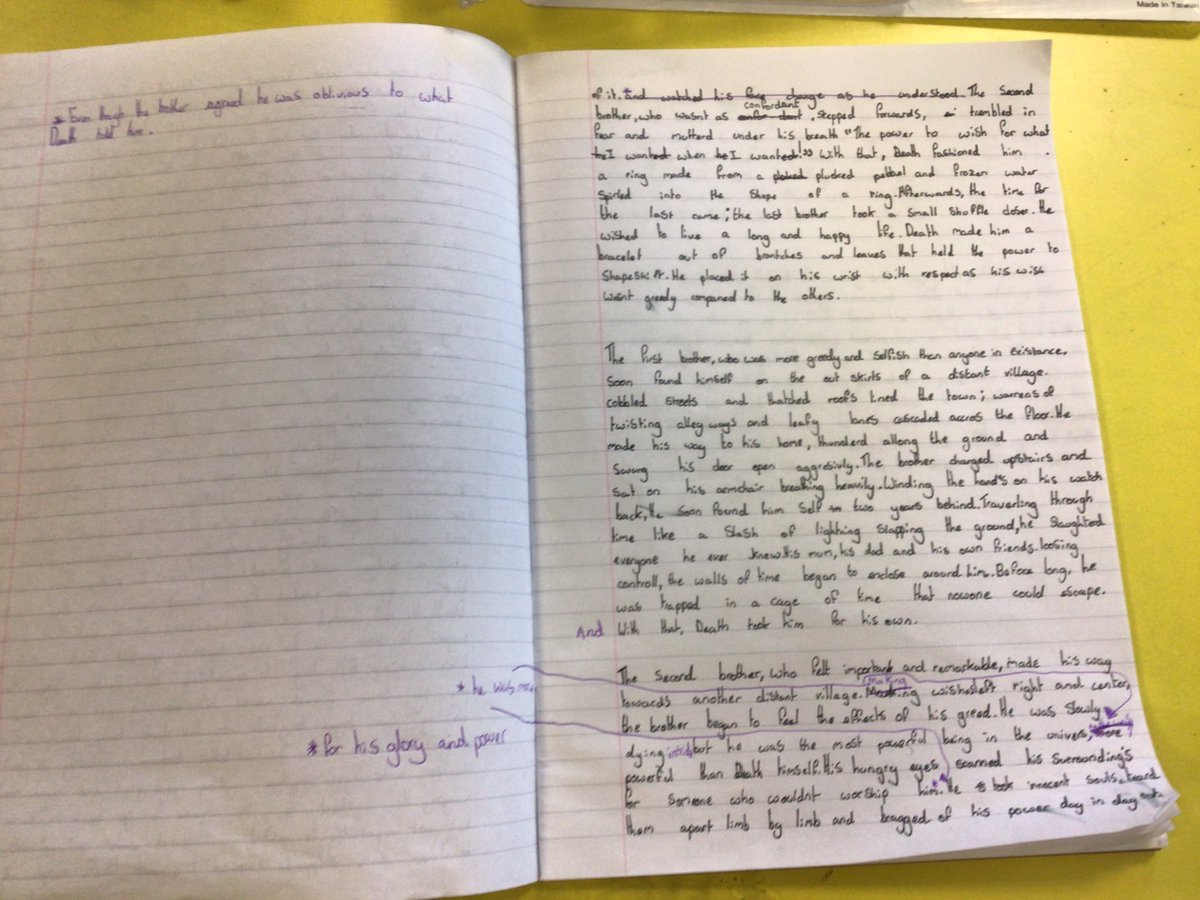 Made in Taiwan
* Even though the bother agreed he was oblivious to what
Death told him.
* he was more
* for his glory and power
of it. * And watched his face change as he understood. The Second
confordant
brother, who wasnt as , stepped forwards, trembled in
fear and mutterd under his breath "The power to wish for what
he I wanted when he I wanted!" With that, Death fashioned him
a ring made from a plucked pebbel and frozen water
spirled into the shape of a ring. Afterwards, the time for
the last came; the last brother took a small shuffle closer. He
wished to live a long and happy life. Death made him a
bracelet out of brantches and leaves that held the power to
Shapeshift. He placed it on his wrist with respect as his wish
wasnt greedy compared to the others.
The first brother, who was more greedy and selfish than anyone in existance.
Soon found himself on the out skirts of a distant village.
cobbled streets and thatched roofs lined the town; warrens of
twisting alley ways and leafy lanes cascaded accros the floor. He
made his way to his home, thunderd allong the ground and
swung his door open aggresivly. The brother charged upstairs and
sat on his armchair breathing heavily. Winding the hands on his watch
back, he soon found him self two years behind. Traverling through
time like a slash of lightning slapping the ground, he slaughted
everyone he ever knew. His mum, his dad and his own friends. loosing
controll, the walls of time began to enclose around him. Before long, he
was trapped in a cage of time that nowone could escape.
And With that, Death took him for his own.
The second brother, who felt important and remarkable, made his way
making
towards another distant village. wishes left right and center,
the brother began to feel the effects of his greed. He was slowly
dying inside, but he was the most powerful being in the univers,
powerful than Death himself. His hungry eyes scanned his surrounding's
for someone who wouldnt worship him. He took innecent souls, teard
them apart limb by limb and bragged of his power day in day out.